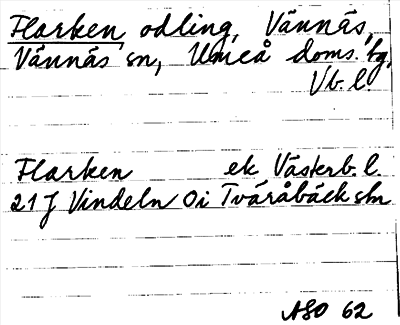 Flarken, odling, Vännäs,
Vännäs sn, Umeå doms. tg,
Vb. l.
Flarken ek Västerb. l.
21 J Vindeln 0i Tväråbäck stn
ASO 62